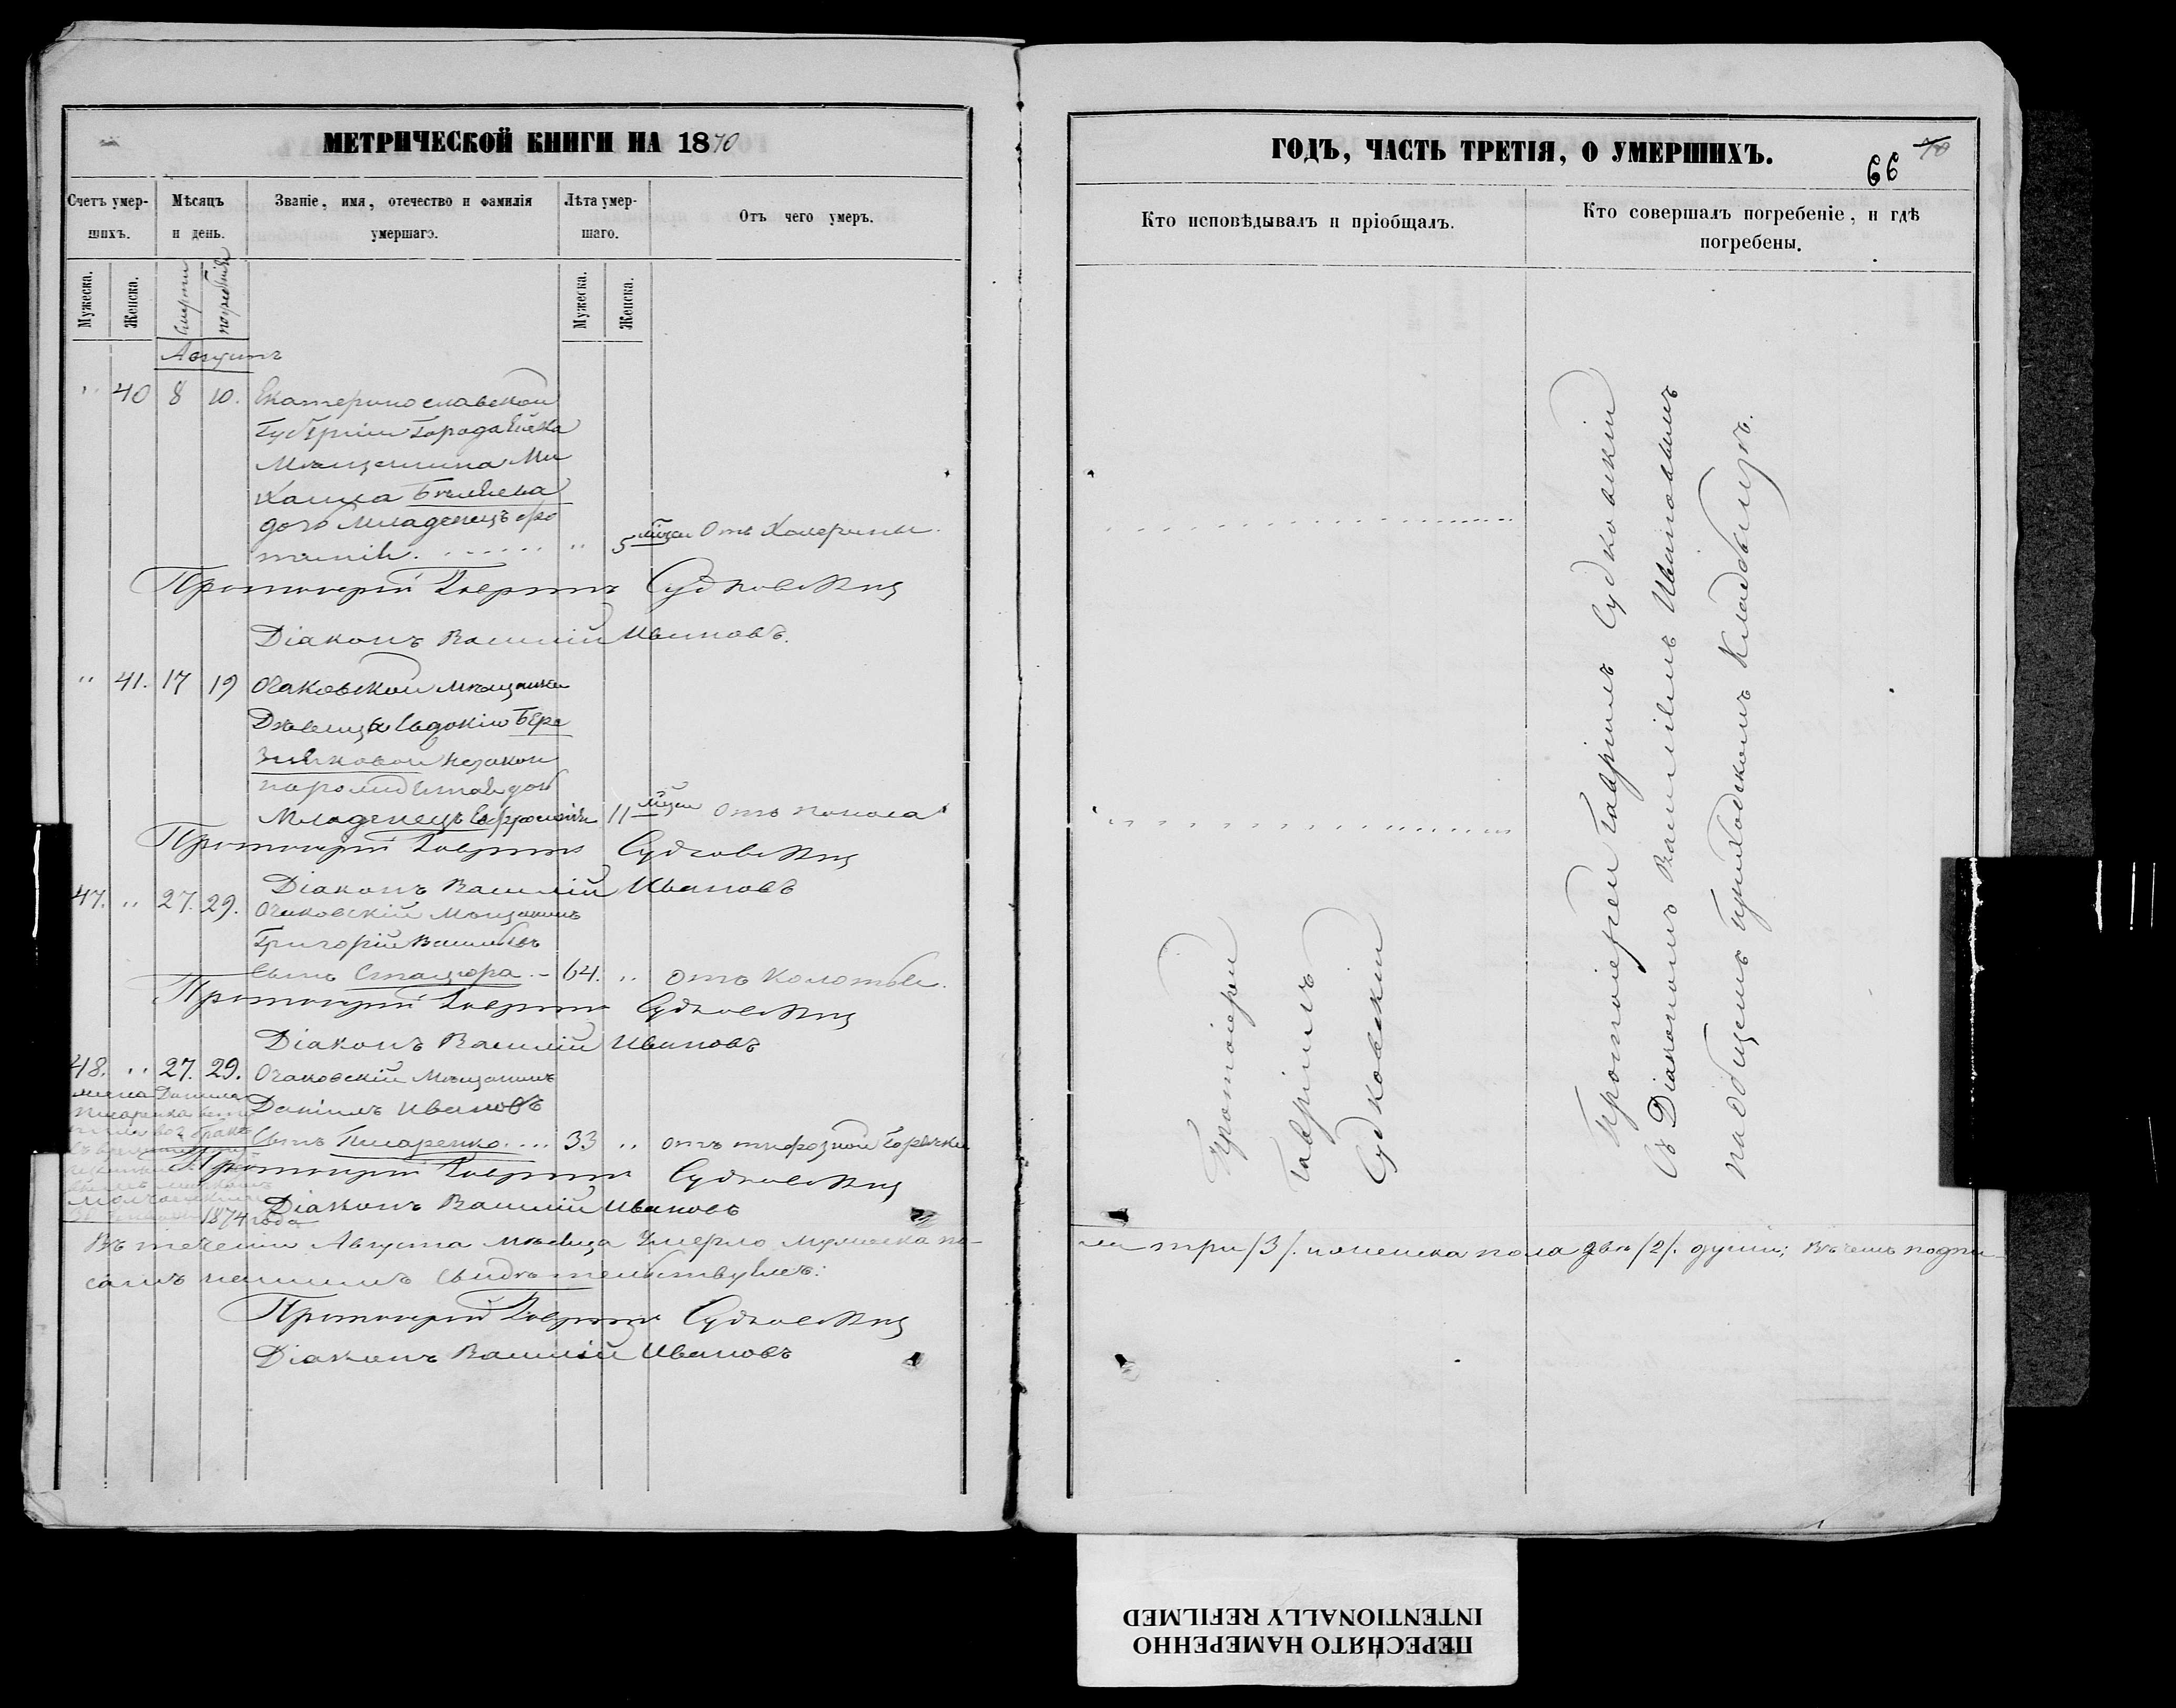 МЕТРИЧЕСКОЙ КНИГИ НА 1870
Счетъ умер-
шихъ.
Мѣсяцъ
и день.
Званіе, имя, отечество и фамилія
умершаго.
Лѣта умер-
шаго.
Отъ чего умеръ.
Мужеска.
Женска.
Смерти
погребенія
Мужеска.
Женска.
Августъ
" 40 8 10. Екатеринославской
Губерніи Города Ейска
Мѣщанина Ми
хаила Бѣляева
дочь Младенецъ
5 мѣсяц Отъ Холерины.
Протоіерей Гавріилъ Судковскій
Діаконъ Василій Ивановъ.
" 41. 17 19 Очаковской мѣщанки
Дѣвицы Евдокіи Бере
зняковой незакон
норожденная дочь
Младенецъ Евфросинія 11 мѣсяц отъ поноса
Протоіерей Гавріилъ Судковскій
Діаконъ Василій Ивановъ
47. " 27. 29. Очаковскій Мѣщанинъ
Григорій Васильевъ
Сынъ Стацюра - 64. " отъ колотья.
Протоіерей Гавріилъ Судковскій
Діаконъ Василій Ивановъ
48. " 27. 29. Очаковскій Мѣщанинъ
Даніилъ Ивановъ
Сынъ Писаренко. ... 33 " отъ тифозной горячки
жена Данила
Писаренка
1874 года
Протоіерей Гавріилъ Судковскій
Діаконъ Василій Ивановъ
Въ теченіи Августа мѣсяца Умерло мужеска по-
самъ нашимъ свидѣтельствуемъ:
Протоіерей Гавріилъ Судковскій
Діаконъ Василій Ивановъ
ГОДЪ, ЧАСТЬ ТРЕТІЯ, О УМЕРШИХЪ.
66
70
Кто исповѣдывалъ и пріобщалъ.
Кто совершалъ погребеніе, и гдѣ
погребены.
Протоіерей
Гавріилъ
Судковскій
Протоіерей Гавріилъ Судковскій
Съ Діакономъ Василіемъ Ивановымъ
на общемъ приходскомъ кладбищѣ.
ла три /3/. и женска пола двѣ /2/. души; въ чемъ подпи-
ПЕРЕСНЯТО НАМЕРЕННО
INTENTIONALLY REFILMED